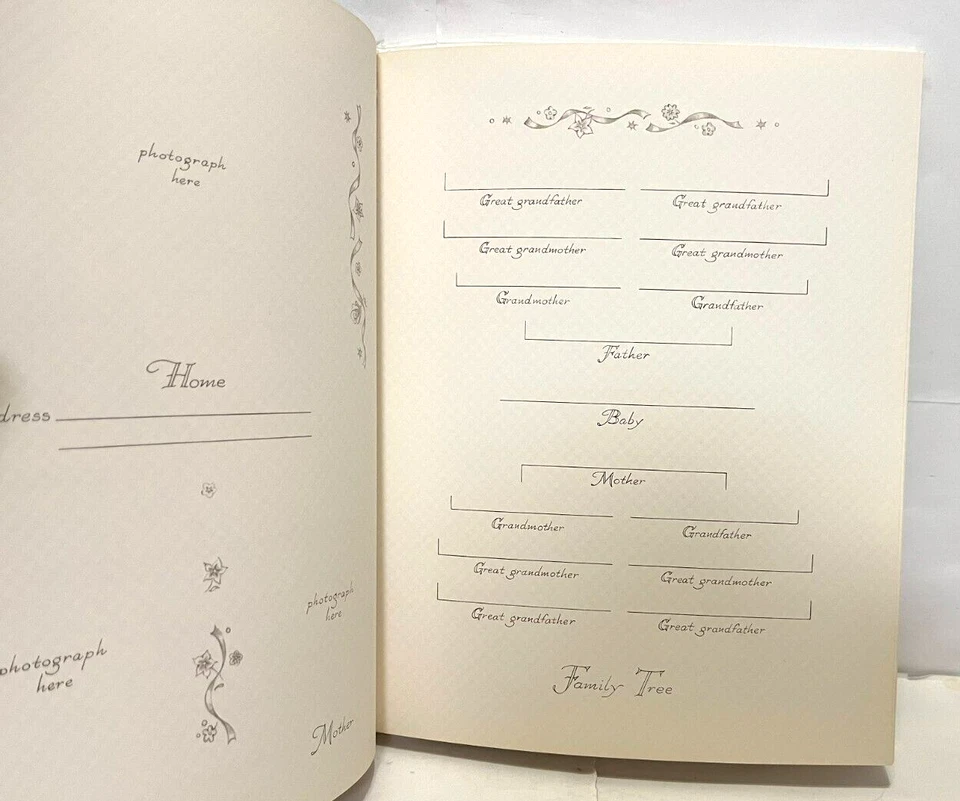 photograph
here
Home
dress
photograph
here
photograph
here
Mother
Great grandfather Great grandfather
Great grandmother Great grandmother
Grandmother Grandfather
Father
Baby
Mother
Grandmother Grandfather
Great grandmother Great grandmother
Great grandfather Great grandfather
Family Tree